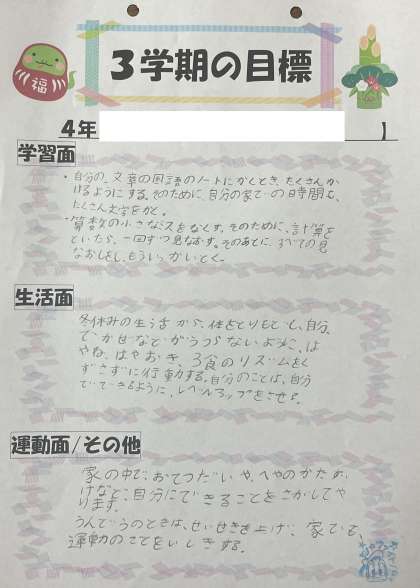 福
3学期の目標
4年 】
学習面
・自分の、文章の国語のノートにかくとき、たくさんか
けるようにする。そのために、自分の家での時間も、
たくさん文字をかく。
・算数の小さなミスをなくす。そのために、計算を
といたら、一回ずつ見なおす。そのあとに、すべての見
なおしをし、もういっかいとく。
生活面
冬休みの生活から、体をとりもどし、自分
でかぜなどがうつらないように、は
やね、はやおき、3食のリズムをく
ずさずに行動する。自分のことは、自分
でできるように、レベルアップをさせる。
運動面/その他
家の中で、おてつだいや、へやのかたづ
けなど、自分にできることをさがしてや
ります。
うんどうのときは、せいせきを上げ、家でも、
運動のことをいしきする。